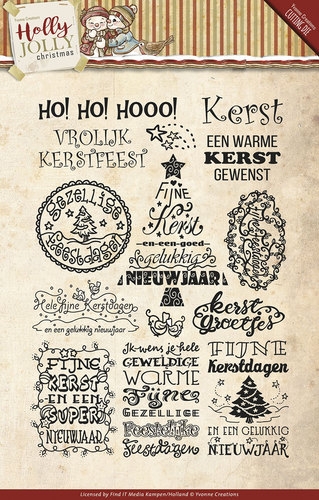 Yvonne Creations
Holly
JOLLY
christmas
Yvonne Creations
CUTTING DIE
HO! HO! HOOO!
VROLIJK
KERSTFEEST
Kerst
EEN WARME
KERST
GEWENST
GEZELLIGE
feestdagen
Fijne
Kerst
en een goed
gelukkig
NIEUWJAAR
Hele fijne Kerstdagen
en een gelukkig nieuwjaar
kerst
Groetjes
FIJNE
KERST
EN EEN
SUPER
NIEUWJAAR
Ik wens je hele
GEWELDIGE
WARME
Fijne
GEZELLIGE
Feestelijke
feestdagen
FIJNE
Kerstdagen
EN EEN GELUKKIG
NIEUWJAAR
Licensed by Find IT Media Kampen/Holland © Yvonne Creations